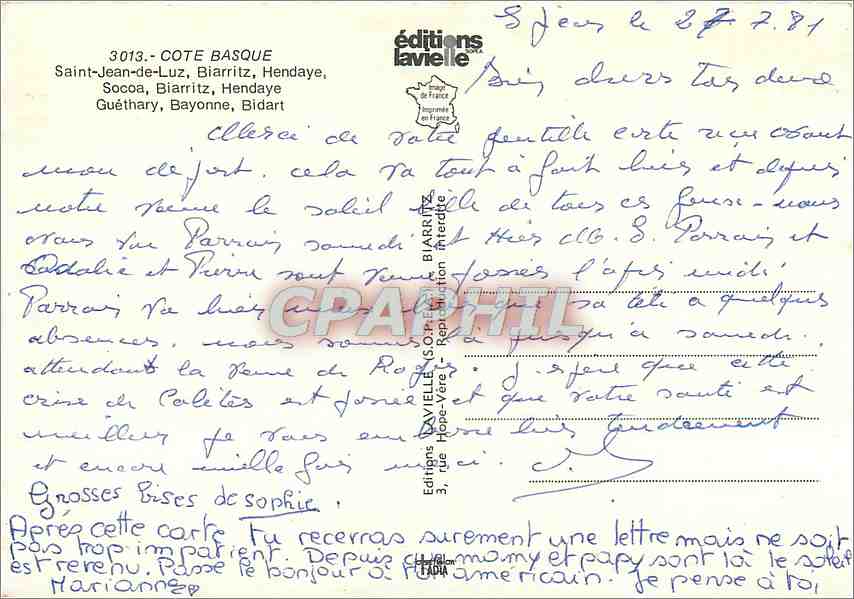 S Jean le 27.7.81
3013.- COTE BASQUE
Saint-Jean-de-Luz, Biarritz, Hendaye,
Socoa, Biarritz, Hendaye
Guéthary, Bayonne, Bidart
éditions
lavielle
SOPEA
Image
de France
Imprimée
en France
Bien chers tous deux
Merci de votre gentille carte reçue avant
mon départ. cela va tout à fait bien et depuis
notre venue le soleil de tous ces - nous
avons vu Parrain samedi et Hier M. S. Parrain et
et Pierre sont venus passer l'après midi
Parrain va bien mais que sa tête a quelques
absences. nous sommes là jusqu'à samedi.
attendant la venue de Roger. J espère que cette
crise de est passée et que votre santé est
meilleure je vous embrasse bien tendrement
et encore mille fois merci.
Editions LAVIELLE (S.O.P.E.A.) - BIARRITZ
3, rue Hope-Vère - Reproduction interdite
CPAPHIL
Grosses bises de sophie.
Après cette carte tu recevras surement une lettre mais ne soit
pas trop impatient. Depuis que mamy et papy sont là le soleil
est revenu. Passe le bonjour à ton américain. Je pense à toi
Marianne
IADIA